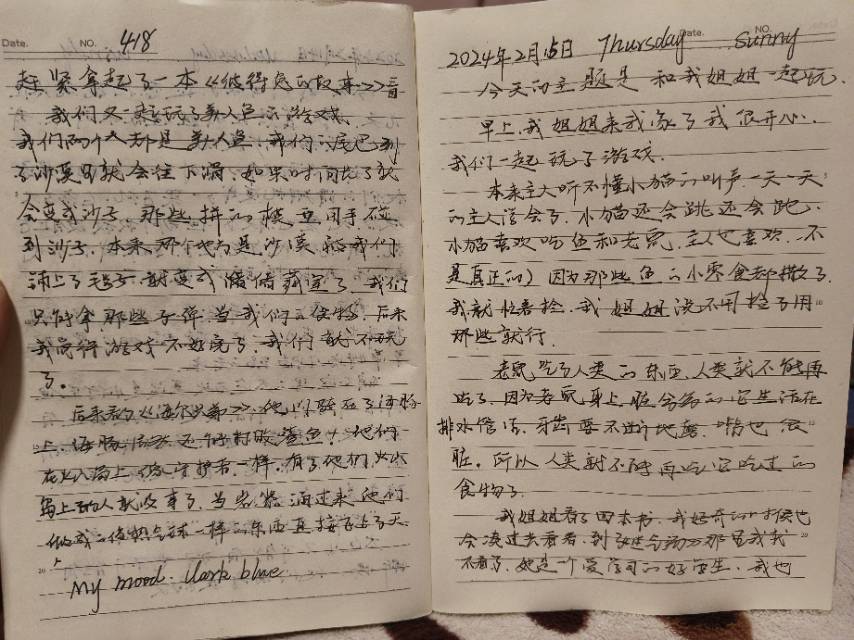 Date. NO. 418
赶紧拿起了一本《彼得兔的故事》看
我们又玩了美人鱼的游戏.
我们两个人都是美人鱼,我们的尾巴到
了沙漠里就会往下滑,如果时间长了就
会变成沙子,那些拼的模型用手碰
到沙子,本来那个地方是沙漠被我们
铺上了毯子,就变成
我们
只好拿那些子弹当我们的食物,后来
我觉得游戏不好玩了,我们就不玩
了。
后来看了《海尔兄弟》,他们骑在了海豚
上,海豚 还帮打败鲨鱼!他们
在火山岛上像守护者一样,有了他们,火山
岛上的人就没事了,当岩浆涌过来他们
做成一个像热气球一样的东西直接飞上了天
My mood. dark blue
Date. NO.
2024年2月15日 Thursday sunny
今天的主题是 和我姐姐一起玩.
早上,我姐姐来我家了我很开心.
我们一起玩了游戏.
本来主人听不懂小猫的叫声,一天一天
的主人学会了,小猫还会跳还会跑,
小猫喜欢吃鱼和老鼠,主人也喜欢.(不
是真正的)因为那些鱼的小零食都撒了.
我就忙着捡,我姐姐说不用捡了用
那些就行.
老鼠吃了人类的东西,人类就不能再
吃了,因为老鼠身上 的它生活在
排水管道,牙齿要不断地磨,嘴也很
脏。所以人类就不能再吃它吃过的
食物了.
我姐姐看了四本书,我好奇的时候也
会凑过去看看,到 那里我就
不看了,她是个爱学习的好学生,我也